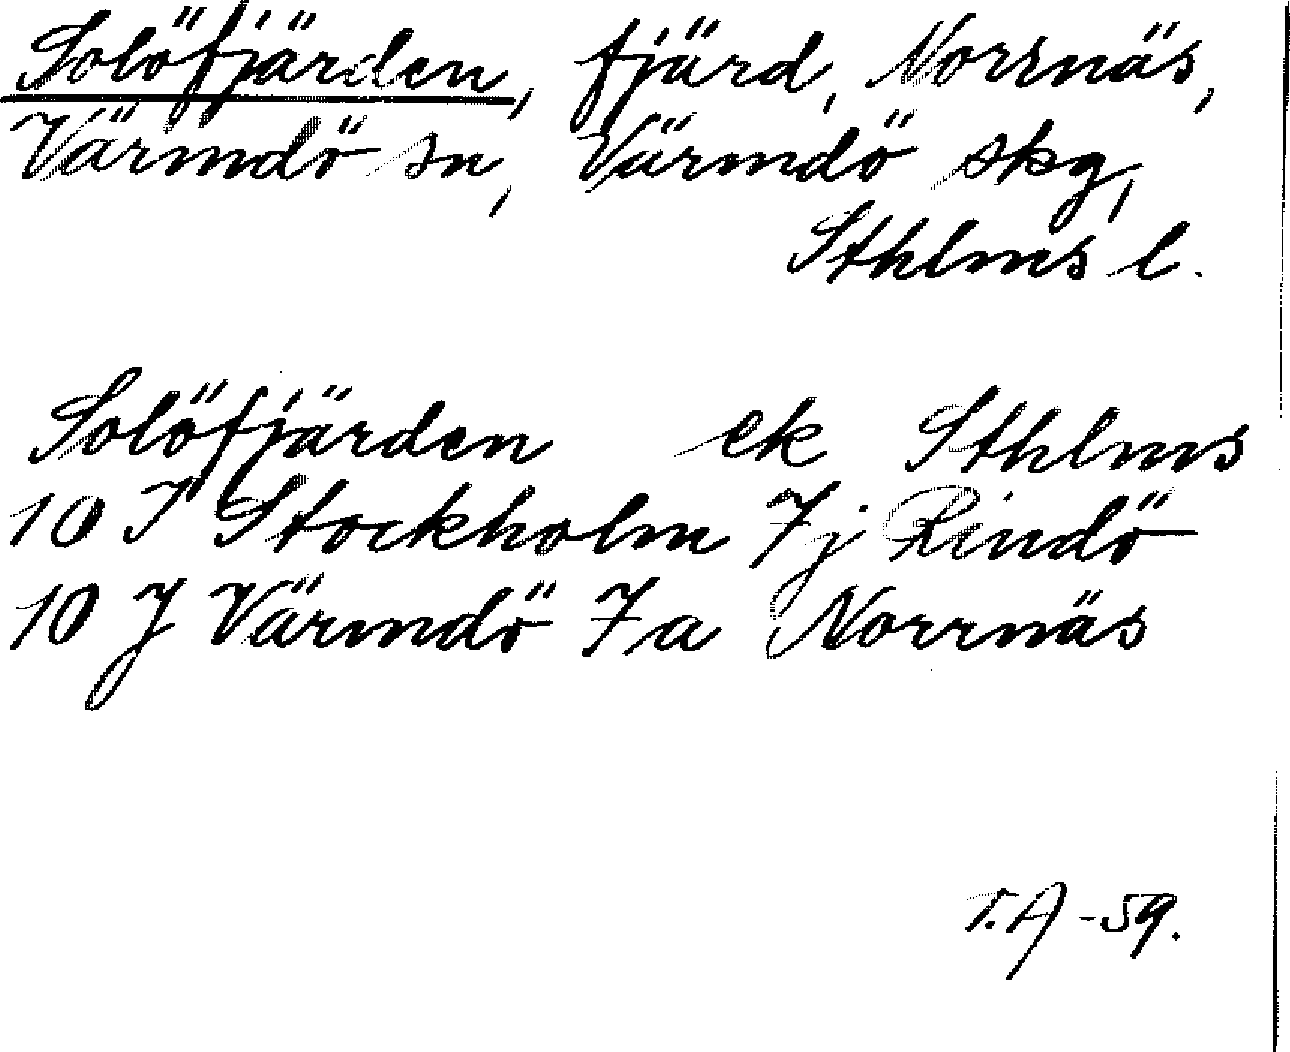 Solöfjärden, fjärd, Norrnäs,
Värmdö sn, Värmdö skg,
Sthlms l.
Solöfjärden ek Sthlms
10 I Stockholm 7j Rindö
10 J Värmdö 7a Norrnäs
T.A -59.